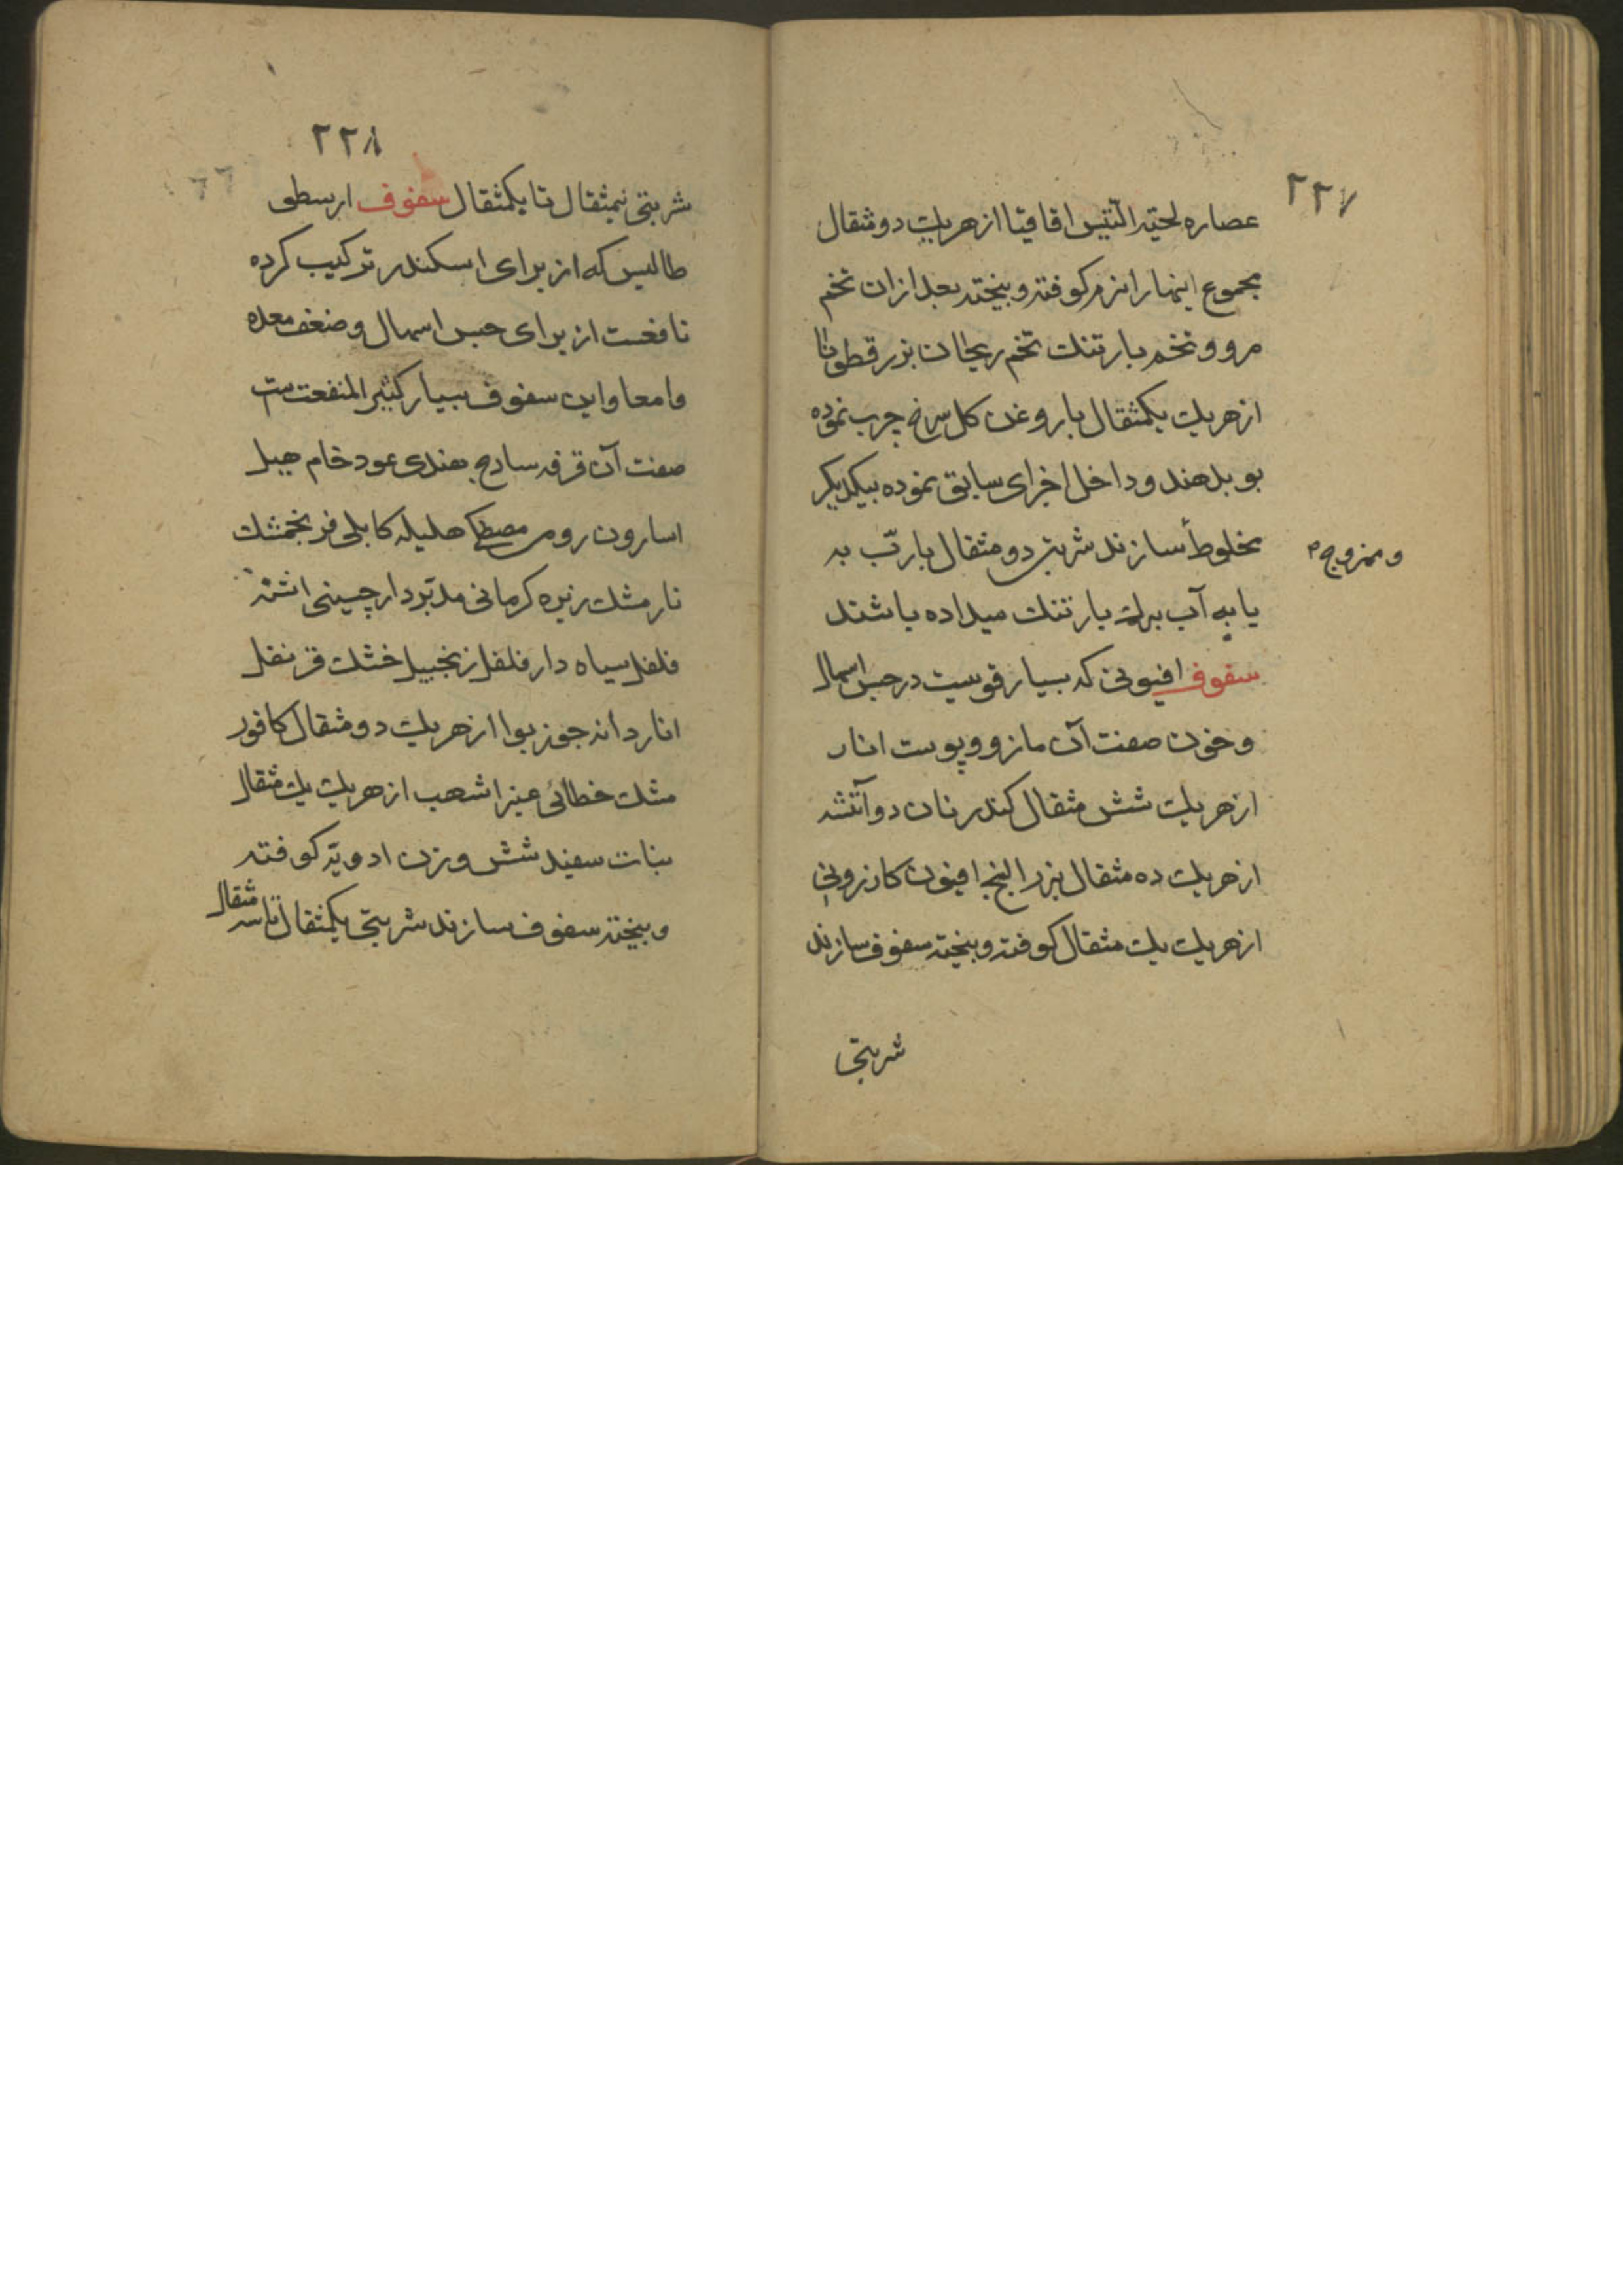 ۲۲۷
عصاره لحیة التیس اقاقیا از هریك دو مثقال
مجموع اینها را نرم کوفته و بیخته بعد ازان تخم
مرو و تخم بارتنك تخم ریحان بزر قطونا
از هریك یکمثقال با روغن کل سرخ چرب نموده
بو بدهند و داخل اجزای سابق نموده بیکدیکر
مخلوط سازند شربتی دو مثقال با ربّ به
و ممزوج
یا به آب برك بارتنك میداده باشند
سفوف افیونی که بسیار قویست در حبس اسهال
و خون صفت آن مازو و پوست انار
از هریك شش مثقال کندر نان دو آتشه
از هریك ده مثقال بزر البنج افیون کازرونی
از هریك یك مثقال کوفته و بیخته سفوف سازند
شربتی
۲۲۸
شربتی نیمثقال تا یکمثقال سفوف ارسطی
طالیس که از برای اسکندر ترکیب کرده
نافعست از برای حبس اسهال و ضعف معده
و امعا و این سفوف بسیار کثیر المنفعت ست
صفت آن قرفه سادج هندی عود خام هیل
اسارون رومی مصطکی هلیله کابلی فرنجمشك
نارمشك زیره کرمانی مدبّر دارچینی اشنه
فلفل سیاه دارفلفل زنجبیل خشك قرنفل
انار دانه جوز بوا از هریك دو مثقال کافور
مشك خطائی عنبر اشهب از هریك یك مثقال
نبات سفید شش وزن ادویّه کوفته
و بیخته سفوف سازند شربتی یکمثقال تا سه مثقال